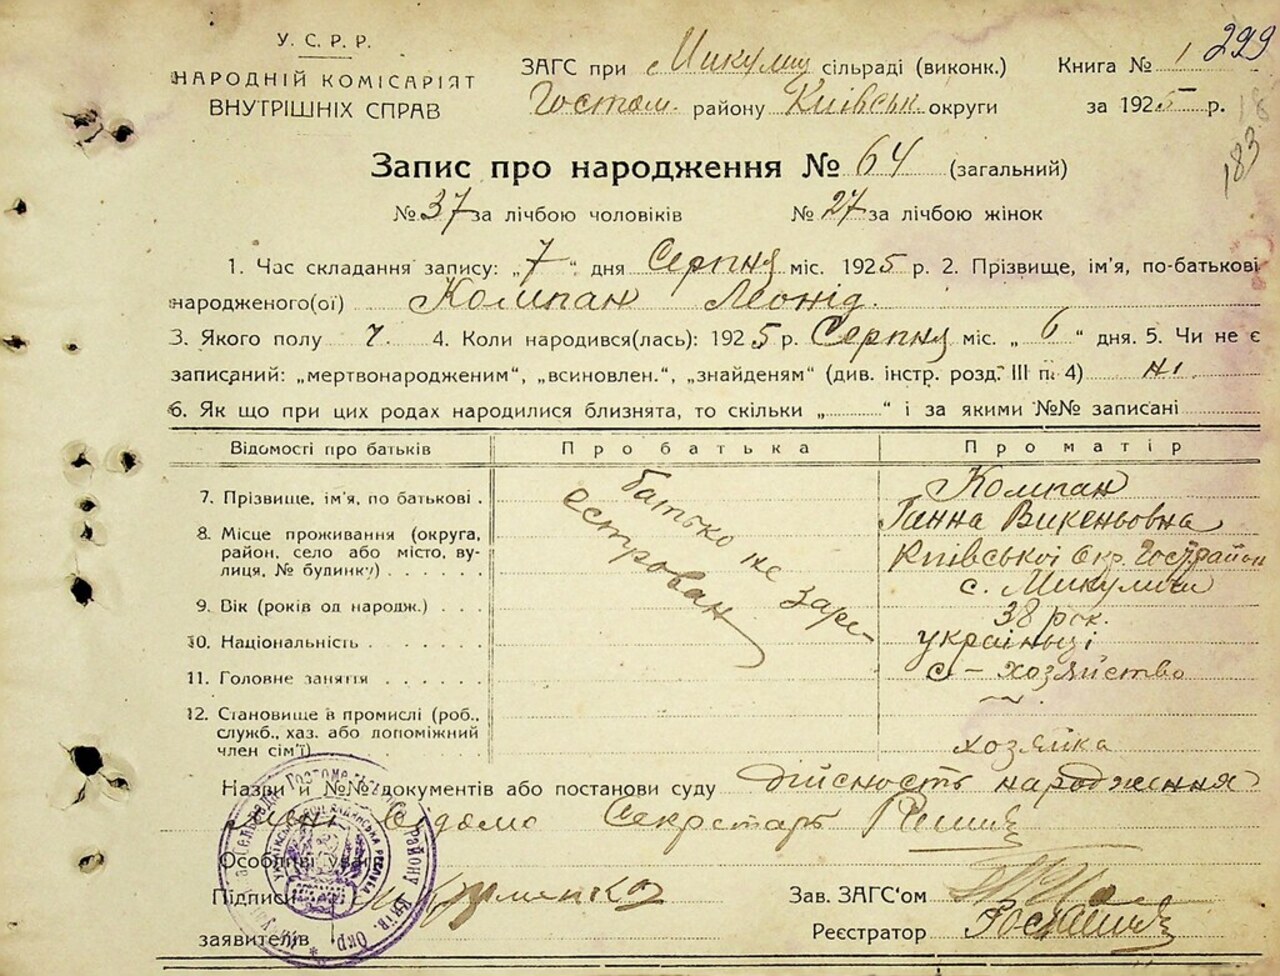 У. С. Р. Р.
НАРОДНІЙ КОМІСАРІЯТ
ВНУТРІШНІХ СПРАВ
ЗАГС при с Микулич сільраді (виконк.)
Гостом. району Київськ округи
Книга № 1 299
за 1925 р.
183
Запис про народження № 64 (загальний)
№ 37 за лічбою чоловіків № 27 за лічбою жінок
1. Час складання запису: „7“ дня Серпня міс. 1925 р. 2. Прізвище, ім'я, по-батькові
народженого(ої) Компан Леонід.
3. Якого полу ч. 4. Коли народився(лась): 1925 р. Серпня міс. „6“ дня. 5. Чи не є
записаний: „мертвонародженим“, „всиновлен.“, „знайденям“ (див. інстр. розд. III п. 4) ні.
6. Як що при цих родах народилися близнята, то скільки „ “ і за якими №№ записані
Відомості про батьків Про батька Про матір
7. Прізвище, ім'я, по батькові . Компан
Ганна Викеньовна
8. Місце проживання (округа,
район, село або місто, ву-
лиця, № будинку) . . . . . .
Київської Окр. Гострайон
с. Микуличи
батько не заре-
естрован
9. Вік (років од народж.) . . . 38 рок.
10. Національність . . . . . . українці
11. Головне заняття . . . . . . с – хозяйство
12. Становище в промислі (роб.,
служб., хаз. або допоміжний
член сім'ї)
хозяйка
Назви й №№ документів або постанови суду дійсность народження
мені відомо Секретарь
Особливі уваги
Підписи Зав. ЗАГС'ом
заявителів Реєстратор